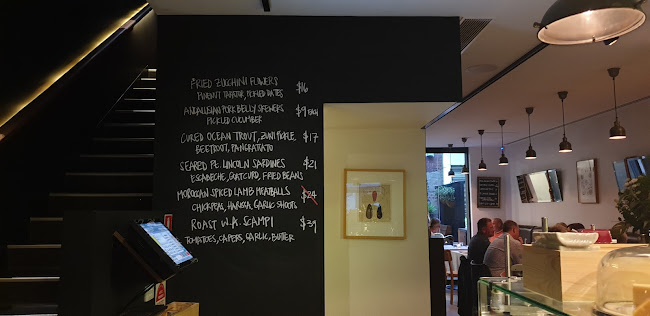 FRIED ZUCCHINI FLOWERS $16
PINENUT TARATOR, PICKLED DATES
ANDALUSIAN PORK BELLY SKEWERS $9 EACH
PICKLED CUCUMBER
CURED OCEAN TROUT, ZUNI PICKLE, $17
BEETROUT, PANGRATATO
SEARED PT. LINCOLN SARDINES $21
ESCABECHE, GOAT CURD, FRIED BEANS
MOROCCAN SPICED LAMB MEATBALLS $24
CHICKPEAS, HARISSA, GARLIC SHOOTS
ROAST W.A. SCAMPI $39
TOMATOES, CAPERS, GARLIC, BUTTER